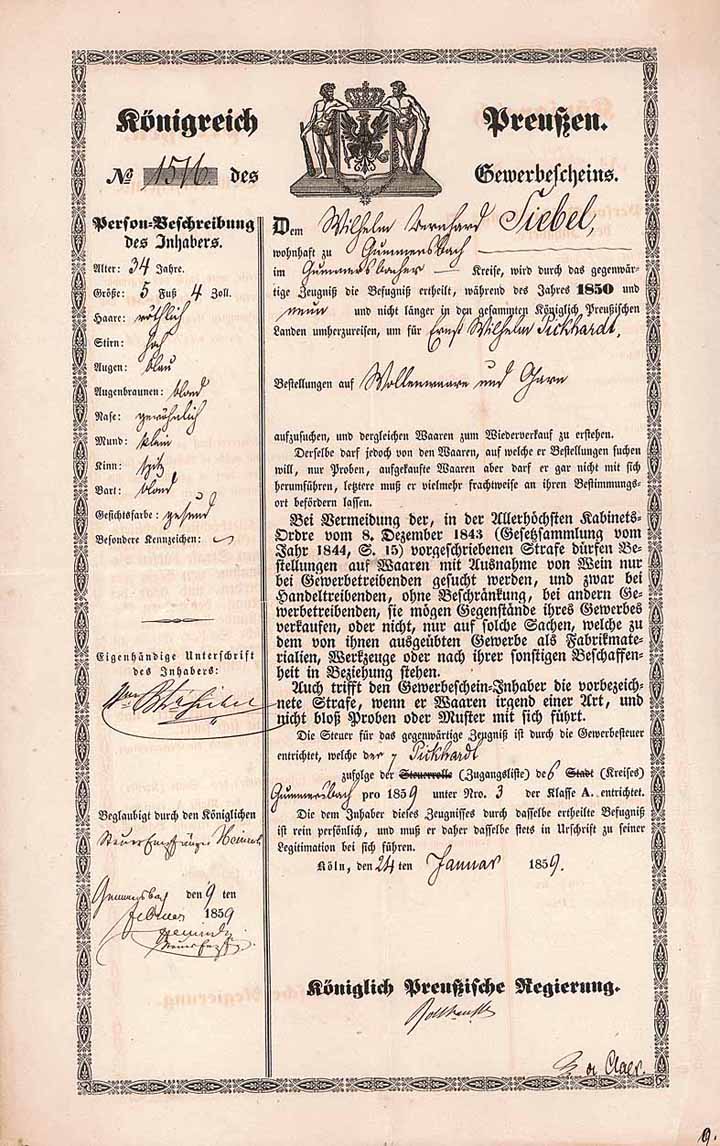 Königreich Preußen.
No 1516. des Gewerbescheins.
Person-Beschreibung
des Inhabers.
Alter: 34 Jahre.
Größe: 5 Fuß 4 Zoll.
Haare: röthlich
Stirn: hoch
Augen: blau
Augenbraunen: blond
Nase: gewöhnlich
Mund: klein
Kinn: spitz
Bart: blond
Gesichtsfarbe: gesund
Besondere Kennzeichen:
Eigenhändige Unterschrift
des Inhabers:
Beglaubigt durch den Königlichen
Steuer Empfänger
Gummersbach den 9 ten
Februar 1859
Dem Wilhelm Bernhard Siebel,
wohnhaft zu Gummersbach
im Gummersbacher Kreise, wird durch das gegenwär-
tige Zeugniß die Befugniß ertheilt, während des Jahres 1850 und
neun und nicht länger in den gesammten Königlich Preußischen
Landen umherzureisen, um für Ernst Wilhelm Pickhardt,
Bestellungen auf Wollenwaare und Garn
aufzusuchen, und dergleichen Waaren zum Wiederverkauf zu erstehen.
Derselbe darf jedoch von den Waaren, auf welche er Bestellungen suchen
will, nur Proben, aufgekaufte Waaren aber darf er gar nicht mit sich
herumführen, letztere muß er vielmehr frachtweise an ihren Bestimmungs-
ort befördern lassen.
Bei Vermeidung der, in der Allerhöchsten Kabinets-
Ordre vom 8. Dezember 1843 (Gesetzsammlung vom
Jahr 1844, S. 15) vorgeschriebenen Strafe dürfen Be-
stellungen auf Waaren mit Ausnahme von Wein nur
bei Gewerbetreibenden gesucht werden, und zwar bei
Handeltreibenden, ohne Beschränkung, bei andern Ge-
werbetreibenden, sie mögen Gegenstände ihres Gewerbes
verkaufen, oder nicht, nur auf solche Sachen, welche zu
dem von ihnen ausgeübten Gewerbe als Fabrikmate-
rialien, Werkzeuge oder nach ihrer sonstigen Beschaffen-
heit in Beziehung stehen.
Auch trifft den Gewerbeschein-Inhaber die vorbezeich-
nete Strafe, wenn er Waaren irgend einer Art, und
nicht bloß Proben oder Muster mit sich führt.
Die Steuer für das gegenwärtige Zeugniß ist durch die Gewerbesteuer
entrichtet, welche der p Pickhardt
zufolge der Steuerrolle (Zugangsliste) des Stadt (Kreises)
Gummersbach pro 1859 unter Nro. 3 der Klasse A. entrichtet.
Die dem Inhaber dieses Zeugnisses durch dasselbe ertheilte Befugniß
ist rein persönlich, und muß er daher dasselbe stets in Urschrift zu seiner
Legitimation bei sich führen.
Köln, den 24 ten Januar 1859.
Königlich Preußische Regierung.
9.